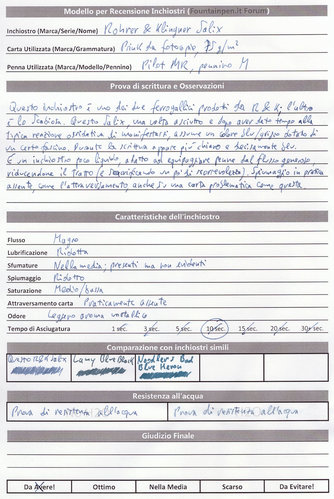 Modello per Recensione Inchiostri (Fountainpen.it Forum)
Inchiostro (Marca/Serie/Nome) Rohrer & Klingner Salix
Carta Utilizzata (Marca/Grammatura) da fotocopie 75 g/m²
Penna Utilizzata (Marca/Modello/Pennino) Pilot MR, pennino M
Prova di scrittura e Osservazioni
Questo inchiostro è uno dei due ferrogallici prodotti da R&K; l'altro
è lo Scabiosa. Questo Salix, una volta asciutto e dopo aver dato tempo alla
tipica reazione ossidativa di manifestarsi, assume un colore blu/grigio dotato di
un certo fascino. Durante la scrittura appare più chiaro e decisamente blu.
È un inchiostro poco liquido, adatto ad equipaggiare penne dal flusso generoso,
riducendone il tratto (e sacrificando un po' di scorrevolezza). Spiumaggio in pratica
assente, come l'attraversamento anche su una carta problematica come questa.
Caratteristiche dell'inchiostro
Flusso Magro
Lubrificazione Ridotta
Sfumature Nella media; presenti ma non evidenti
Spiumaggio Ridotto
Saturazione Medio/bassa
Attraversamento carta Praticamente assente
Odore Leggero aroma metallico
Tempo di Asciugatura 1 sec. 3 sec. 5 sec. 10 sec. 15 sec. 20 sec. 30+ sec.
Comparazione con inchiostri similari
Questo R&K Salix Lamy Blue Black Noodler's Bad Blue Heron
Resistenza all'acqua
Prova di resistenza all'acqua Prova di resistenza all'acqua
Giudizio Finale
Da Avere! Ottimo Nella Media Scarso Da Evitare!